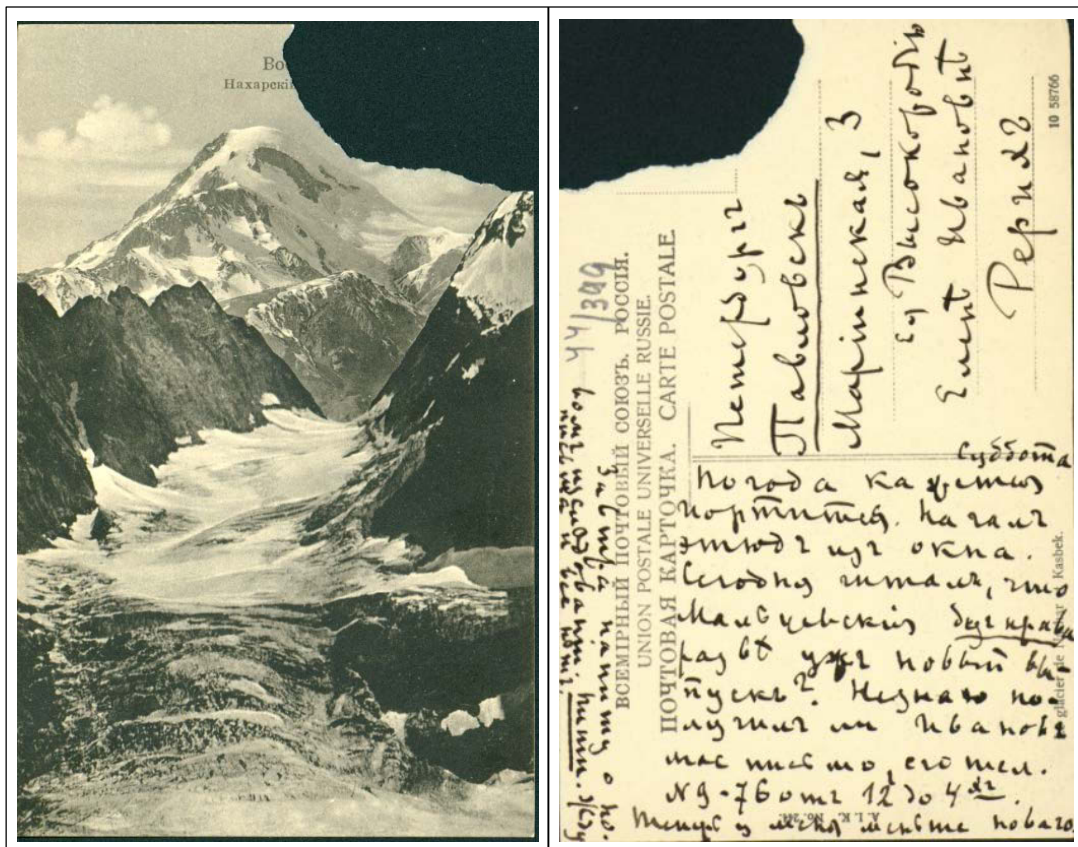 Во
Нахарскій
44/399
ВСЕМІРНЫЙ ПОЧТОВЫЙ СОЮЗЪ. РОССІЯ.
UNION POSTALE UNIVERSELLE RUSSIE.
ПОЧТОВАЯ КАРТОЧКА. CARTE POSTALE.
Петербургъ
Павловскъ
Маріинская, 3
Ея Высокородію
Еленѣ Ивановнѣ
Рерихъ
10 58766
Суббота
Погода кажется
портится. Началъ
этюдъ изъ окна.
Сегодня читалъ, что
Мальцевскій
развѣ уже новый вы-
пускъ? Незнаю по-
лучилъ ли Ивановъ
мое письмо, его тел.
№ 9-76 отъ 12 до 4
Теперь у меня меньше новаго
завтра напишу о
glacier de Nachar Kasbek.
A. I. K. No. 244.